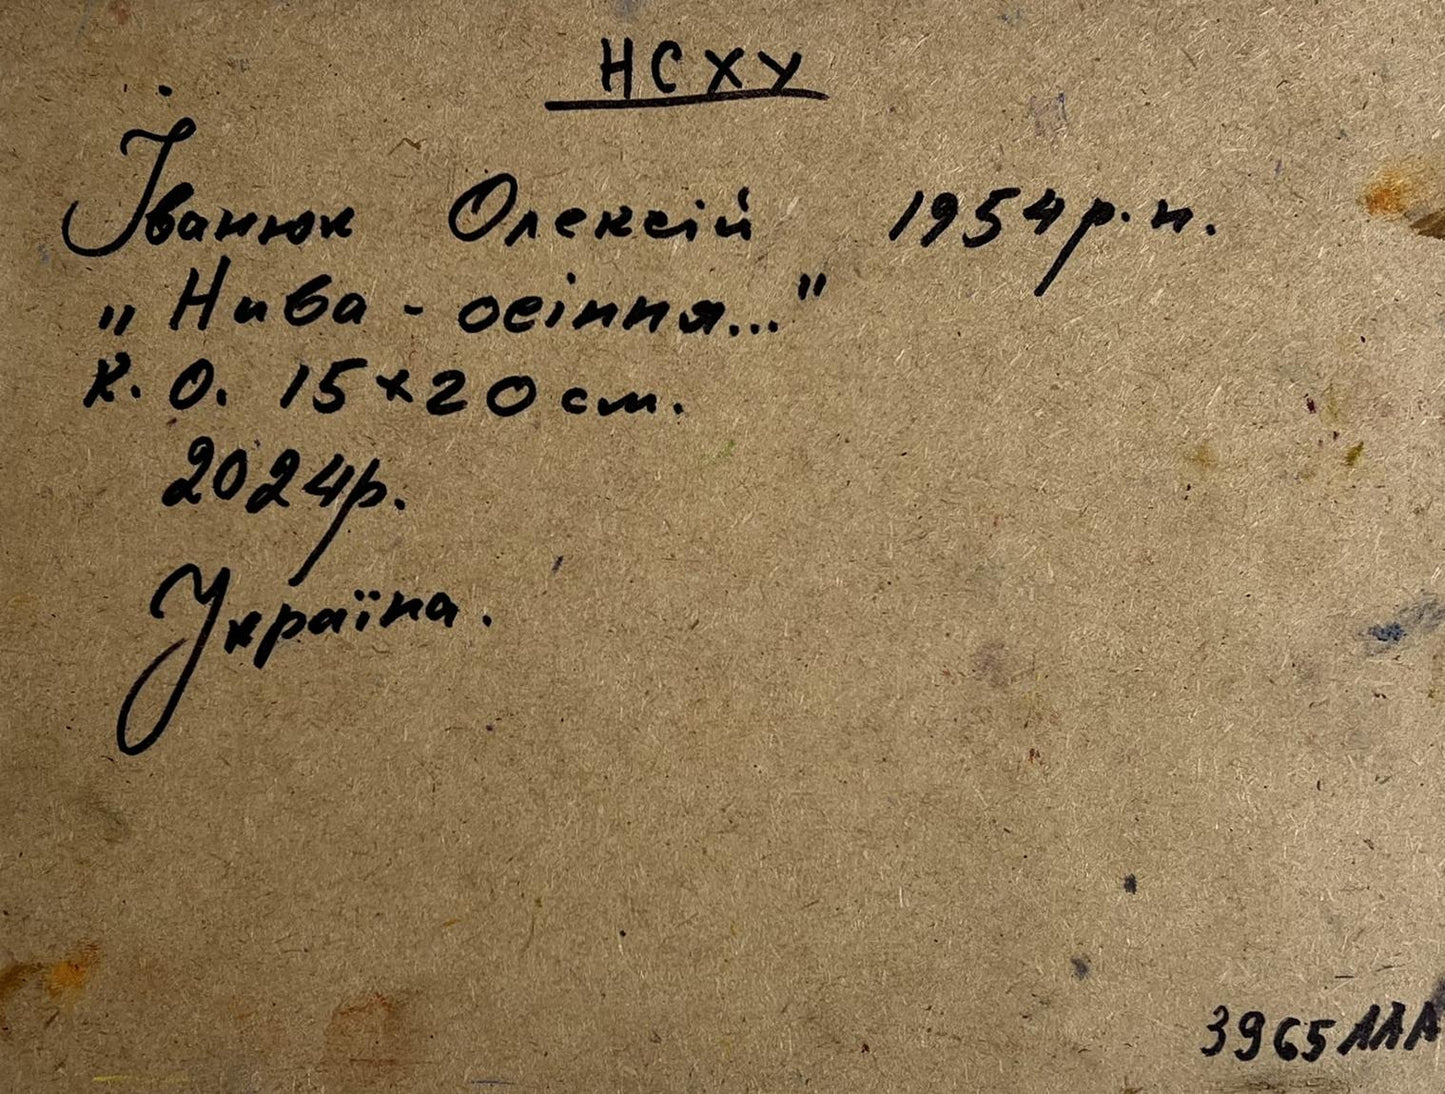 НСХУ
Іванюк Олексій 1954 р.н.
„Нива - осіння..."
К.О. 15×20 см.
2024р.
Україна.
3965 ААА